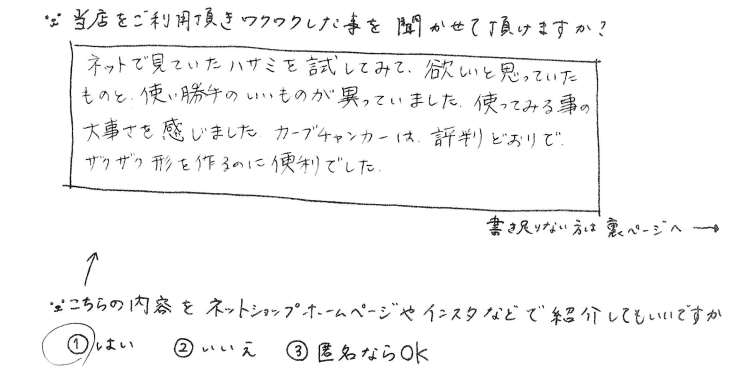 ※当店をご利用頂きワクワクした事を聞かせて頂けますか?
ネットで見ていたハサミを試してみて、欲しいと思っていた
ものと、使い勝手のいいものが異っていました。使ってみる事の
大事さを感じました カーブチャンカーは、評判どおりで、
ザクザク形を作るのに便利でした。
書き足りない方は裏ページへ→
↑
※こちらの内容をネットショップホームページやインスタなどで紹介してもいいですか
①はい ②いいえ ③匿名ならOK